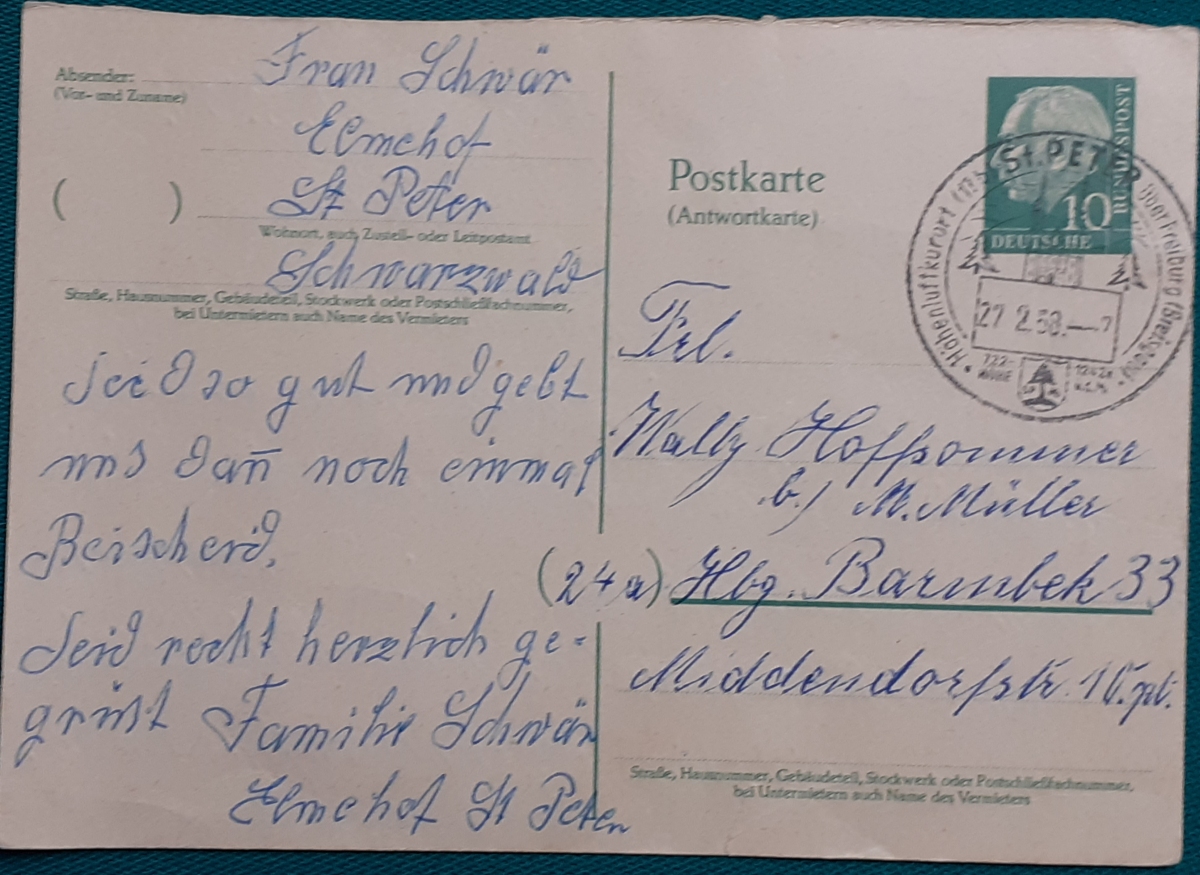 Absender:
(Vor- und Zuname)
Frau Schwär
Elmehof
( )
St Peter
Wohnort, auch Zustell- oder Leitpostamt
Schwarzwald
Straße, Hausnummer, Gebäudeteil, Stockwerk oder Postschließfachnummer,
bei Untermietern auch Name des Vermieters
Seid so gut und gebt
uns dan̄ noch einmal
Beischeid.
Seid recht herzlich ge-
grüßt Familie Schwär
Elmehof St Peter
Postkarte
(Antwortkarte)
DEUTSCHE
BUNDESPOST
10
St. PETER
Höhenluftkurort
über Freiburg (Breisgau)
27 2.58.—7
722-
HÖHE
1242 m
ü.d.M.
Frl.
Wally Hoffsommer
b./ M. Müller
(24a) Hbg. Barmbek 33
Middendorfstr. 15. pt.
Straße, Hausnummer, Gebäudeteil, Stockwerk oder Postschließfachnummer,
bei Untermietern auch Name des Vermieters